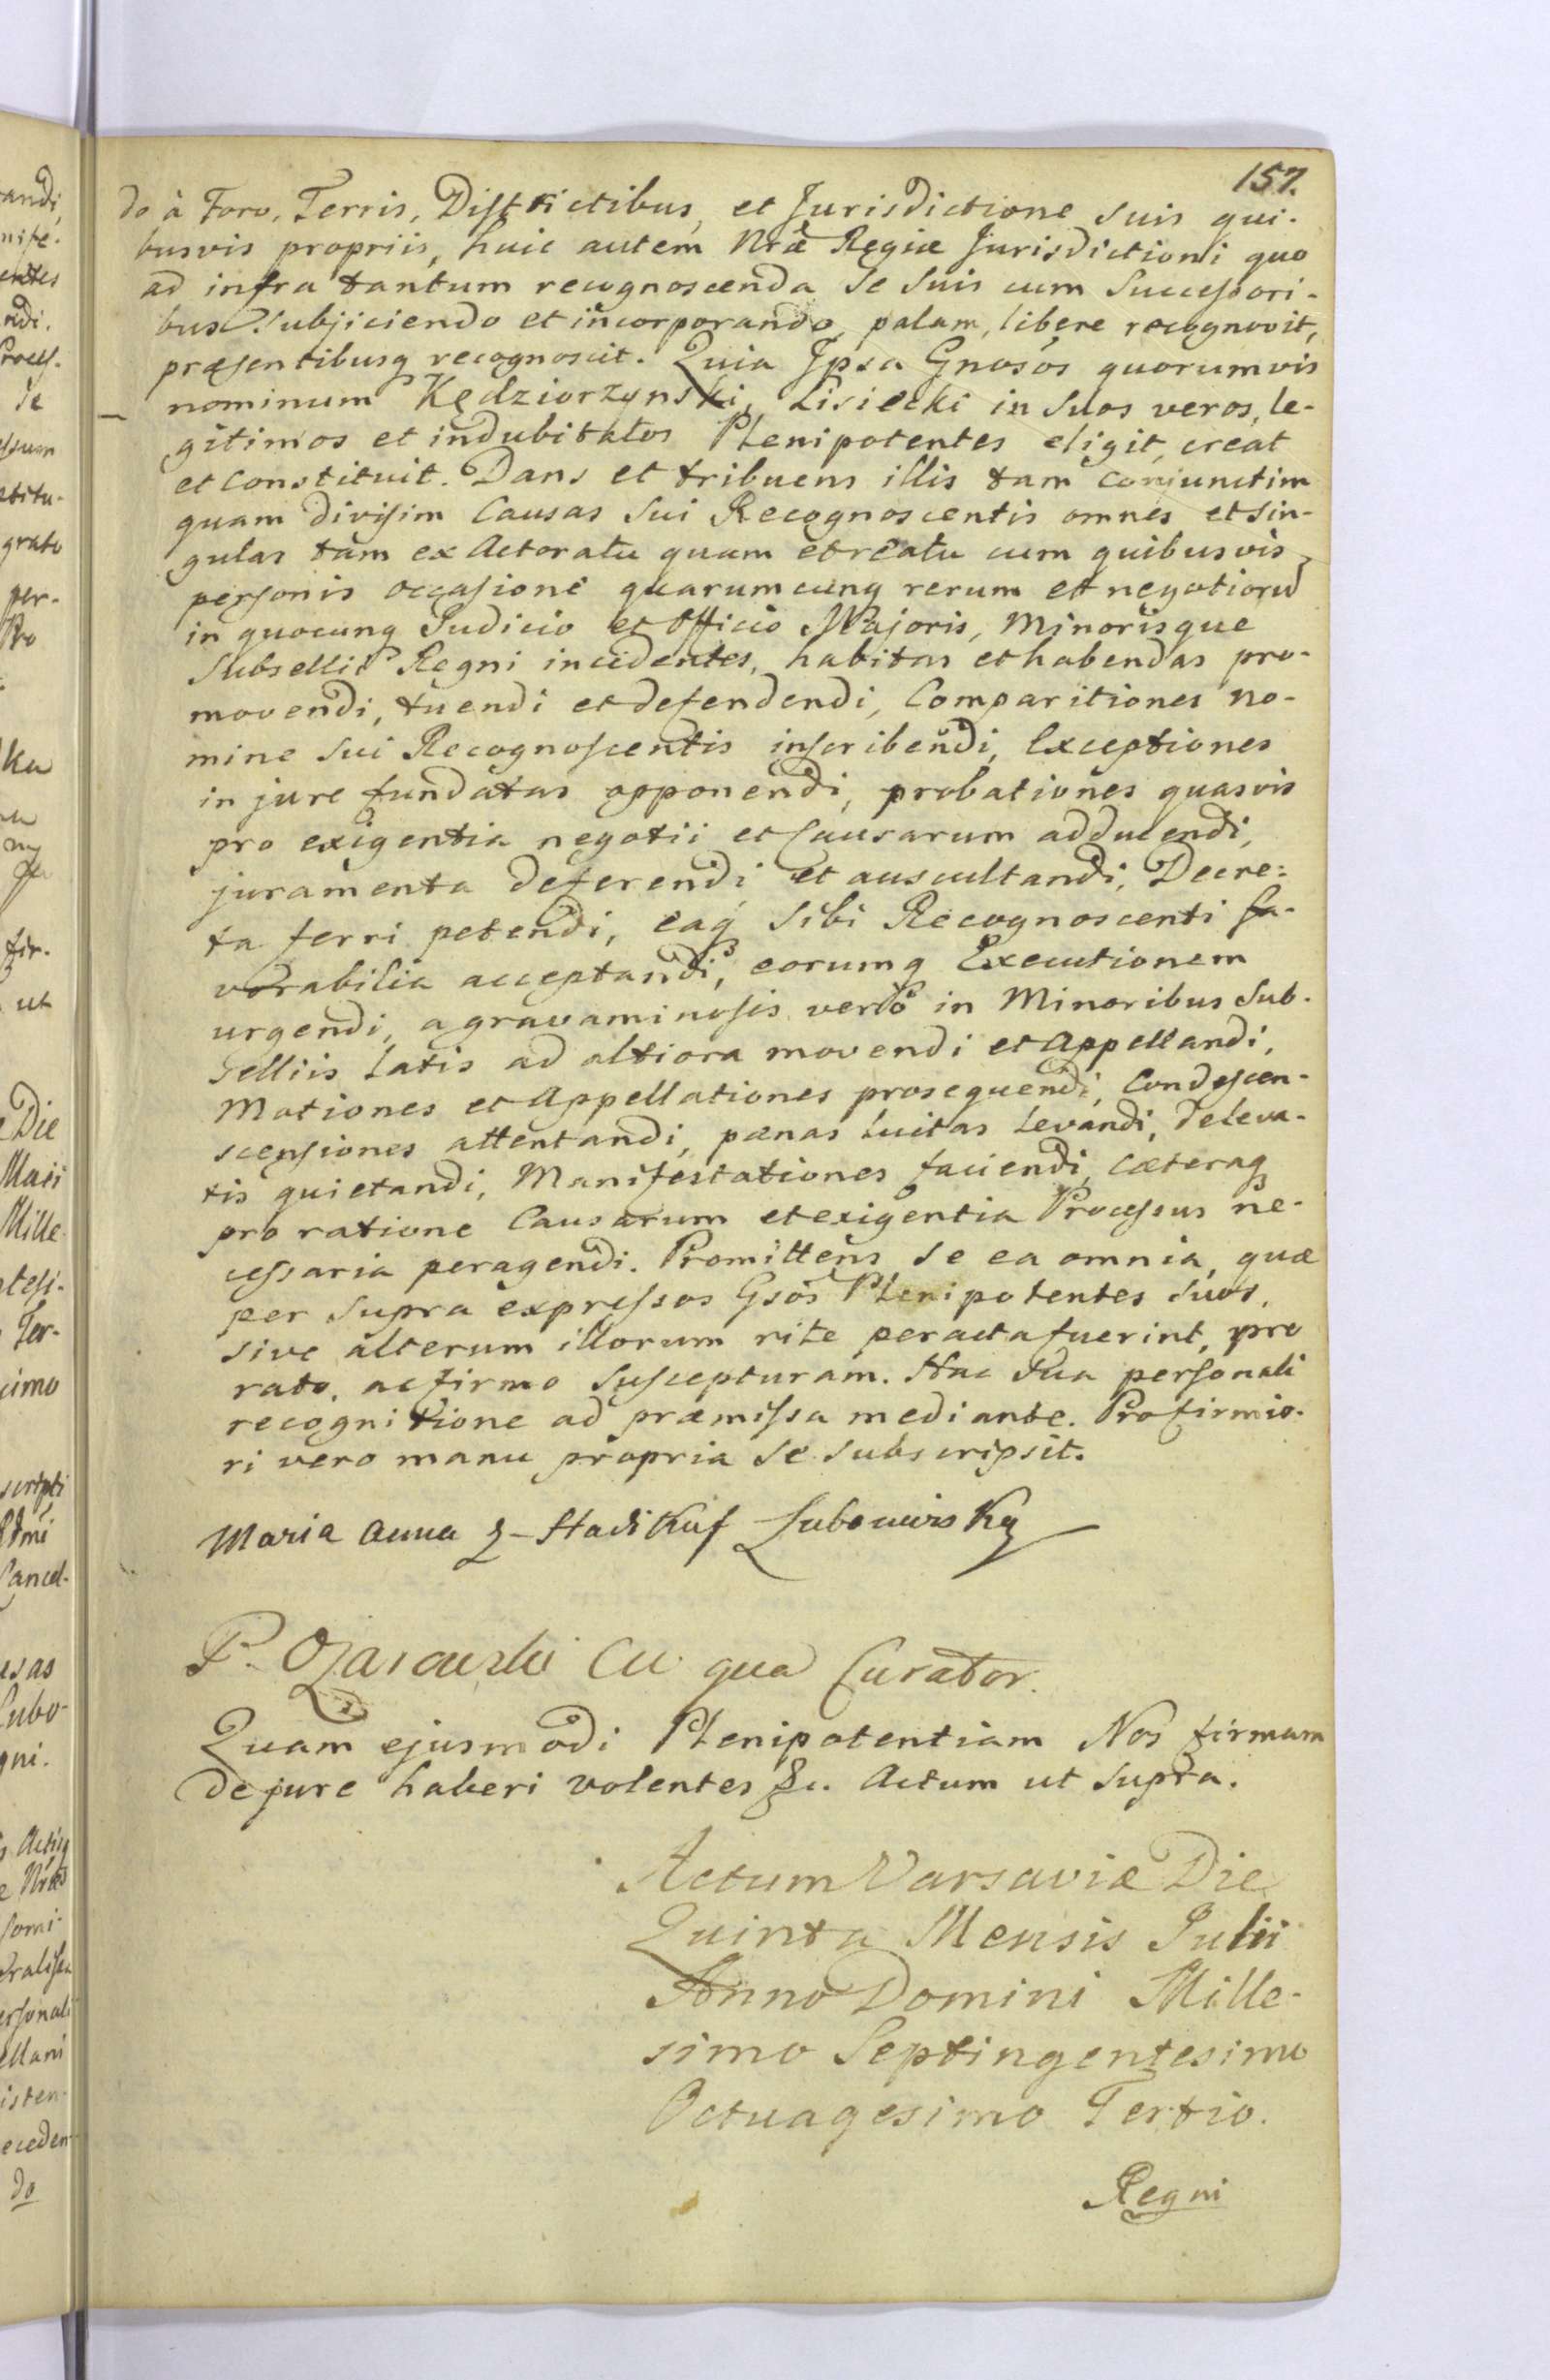 157.
do à Foro, Terris, Districtibus, et Jurisdictione suis qui-
busvis propriis, huic autem Nrae Regiae Jurisdictioni quo
ad infra tantum recognoscenda se suis cum Successori-
bus subjiciendo et incorporando, palam, libere recognovit,
praesentibusq recognoscit. Quia Ipsa Gnosos quorumvis
nominum Kędziorzynski, Lisiecki in suos veros, le-
gitimos et indubitatos Plenipotentes eligit, creat
et constituit. Dans et tribuens illis tam conjunctim
quam divisim Causas sui Recognoscentis omnes et sin-
gulas tam ex Actoratu quam et reatu cum quibusvis
personis occasione quarumcunq rerum et negotioru
in quocunq Judicio et Officio Majoris, Minorisque
Subsellii Regni incidentes, habitas et habendas pro-
movendi, tuendi et defendendi, Comparitiones no-
mine sui Recognoscentis inscribendi, Exceptiones
in jure fundatas opponendi, probationes quasvis
pro exigentia negotii et Causarum adducendi,
juramenta deferendi et auscultandi, Decre:
ta ferri petendi, eaq sibi Recognoscenti fa-
vorabilia acceptandi, eorumq Executionem
urgendi, a gravaminosis vero in Minoribus Sub-
selliis latis ad altiora movendi et Appellandi,
Motiones et Appellationes prosequendi, Condescen-
scensiones attentandi, paenas luitas levandi, de leva-
tis quietandi, Manifestationes faciendi, caeteraq
pro ratione Causarum et exigentia Processus ne-
cessaria peragendi. Promittens se ea omnia, quae
per supra expressos Gsos Plenipotentes suos,
sive alterum illorum rite peracta fuerint, pro
rato, ac firmo suscepturam. Hac sua personali
recognitione ad praemissa mediante. Pro firmio-
ri vero manu propria se subscripsit.
Maria Anna z Hadikuf Lubomirska
P. Ożarowski CW qua Curator.
Quam ejusmodi Plenipotentiam Nos firmam
de jure haberi volentes &c. Actum ut supra.
Actum Varsaviae Die
Quinta Mensis Julii
Anno Domini Mille-
simo Septingentesimo
Octuagesimo Tertio.
Regni